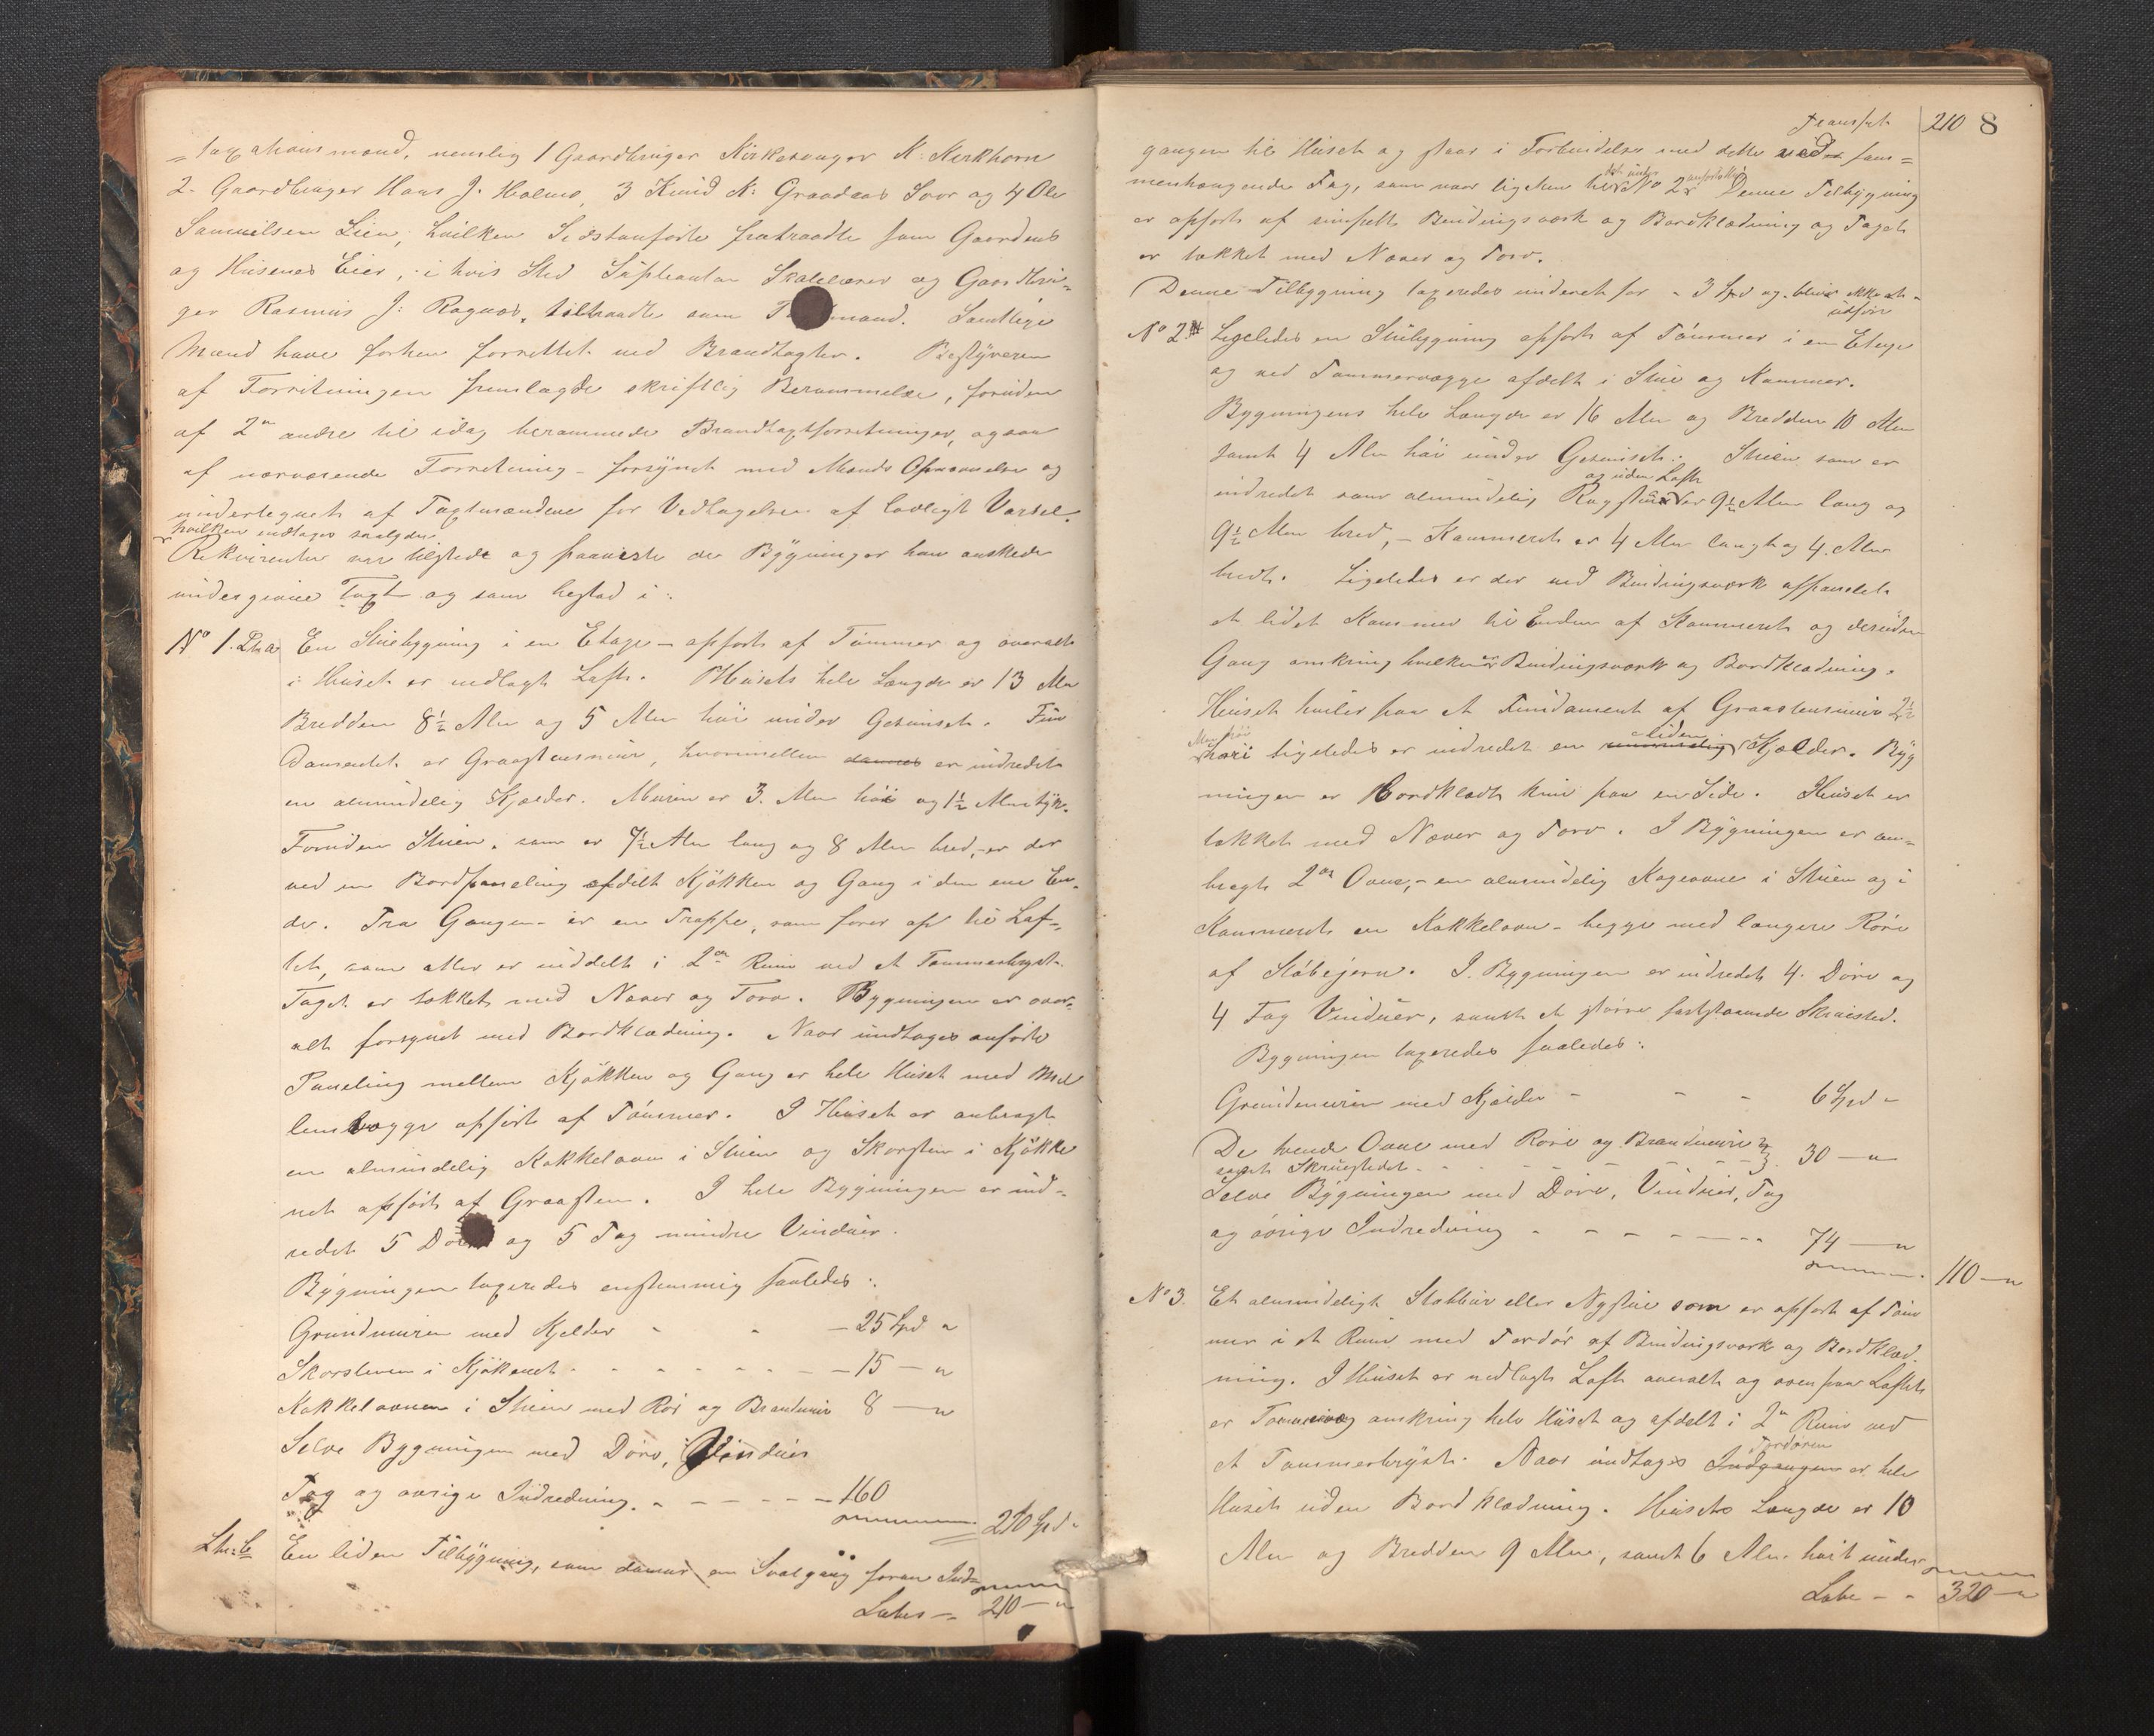 = taxationsmænd, nemlig 1 Gaardbruger Kirkesanger K. Kirkhorn
2. Gaardbruger Hans J. Holme, 3 Knud K: Graadaas Soor og 4 Ole
Samuelsen Lien, hvilken Sidstanførte fratraadte som Gaardens
og Husenes Eier, i hvis Sted Supleanten Skolelærer og Gaardbru=
ger Rasmus J: Ragnæs, tiltraadte som T mand. Samtlige
Mænd have forhen forrettet ved Brandtaxter. Bestyreren
af Forretningen fremlagde skriftlig Berammelse, foruden
af 2de andre til idag berammede Brandtaxtforretninger, ogsaa
af nærværende Forretning – forsynet med Mænds Opnævnelse og
undertegnet af Taxtmændene for Vedtagelsen af lovligt Varsel.
hvilken indtages saalydende
Rekvirenten var tilstede og paaviste de Bygninger han ønskede
undergivne Taxt og som bestod i:
No 1. Ltr a En Stuebygning i en Etage – opført af Tømmer og overalt
i Huset er nedlagt Loft. Husets hele Længde er 13 Aln
Bredden 8½ Aln og 5 Aln høi under Gesimset. Fun
damentet er Graastensmur, hvorimellem dannes er indredet
en almindelig Kjælder. Muren er 3. Aln høi og 1½ Aln tyk.
Foruden Stuen, som er 7½ Aln lang og 8 Aln bred, – er der
ved en Bordpaneling afdelt Kjøkken og Gang i den ene En-
de. Fra Gangen er en Trappe, som fører op til Lof=
tet, som atter er inddelt i 2de Rum ved et Tømmerbryst.
Taget er tækket med Næver og Torv. Bygningen er over=
alt forsynet med Bordklædning. Naar undtages anførte
Paneling mellem Kjøkken og Gang er hele Huset med Mel
lemvægge opført af Tømmer. I Huset er anbragt
en almindelig Kakkelovn i Stuen og Skorsten i Kjøkke
net opført af Graasten. I hele Bygningen er ind=
redet 5 Døre og 5 Fag mindre Vinduer.
Bygningen taxeredes enstemmig saaledes:
Grundmuren med Kjelder - - – 25 Spd "
Skorstenen i Kjøkenet - - - - - - – 15 – "
Kakkelovnen i Stuen med Rør og Brandmur 8 – "
Selve Bygningen med Døre, Vinduer
Tag og øvrige Indredning. - - - - - 160
210 Spd "
Ltr: b En liden Tilbygning, som danner en Svalgang foran Ind=
Latus – 210 – "
Transpt. 210 8
gangen til Huset og staar i Forbindelse med dette ved sam=
menhængende Tag, som naar ligeken det under No 2 anførte Denne Tilbygning
er opført af simpelt Bindingsværk og Bordklædning og Taget
er tækket med Næver og Torv.
Denne Tilbygning taxeredes underet for - 3 Spd og bliver ikke at -
udføre
No 2. Ligeledes en Stuebygning opført af Tømmer i en Etage
og ved Tømmervægge afdelt i Stue og Kammer.
Bygningens hele Længde er 16 Aln og Bredden 10 Aln
samt 4 Aln høi under Gesimset. Stuen som er
og uden Loft
indredet som almindelig Røgstue er 9½ Aln lang og
9½ Aln bred, – Kammeret er 4 Aln langt og 4. Aln
bredt. Ligeledes er der ved Bindingsværk afpanelet
et lidet Kammer til Enden af Kammeret og desuden
Gang omkring hvilken er Bindingsværk og Bordklædning.
Huset hviler paa et Fundament af Graastensmur 2½
Aln høi
hvori ligeledes er indredet en almindelig liden Kjælder. Byg
ningen er Bordklædt kun paa en Side. Huset er
tækket med Næver og Torv. I Bygningen er an=
bragt 2de Ovne, – en almindelig Kogeovne i Stuen og i
Kammeret en Kakkelovn – begge med længere Røre
af Støbejern. I Bygningen er indredet 4. Døre og
4 Fag Vinduer, samt et større fastgaaende Skruested.
Bygningen taxeredes saaledes:
Grundmuren med Kjælder - - - 6 Spd "
De tvende Ovne med Røre og Brandmure
samt Skruestedet - - - - - - 30 – "
Selve Bygningen med Døre, Vinduer, Tag
og øvrige Indredning - - - - - - - 74 – "
110 – "
No 3. Et almindeligt Stabbur eller Nystue som er opført af Tøm
mer i et Rum med Fordør af Bindingsværk og Bordklæd
ning. I Huset er nedlagt Loft overalt og oven paa Loftet
er Tømmervæg omkring hele Huset og afdelt i 2de Rum ved
et Tømmerbryst. Naar undtages Indgangen Fordøren er hele
Huset uden Bordklædning. Husets Længde er 10
Aln og Bredden 9 Aln, samt 6 Aln høit under
Latus - - 320 – "